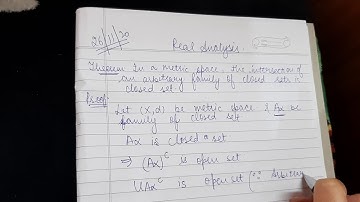 26/11/20
Real Analysis.
Theorem In a metric space, the intersection of
an arbitrary family of closed sets is
closed set.
Proof: Let (X,d) be metric space & Aα be
family of closed set
Aα is closed set
⇒ (Aα)ᶜ is open set
UAαᶜ is open set (∵ Arbitrary